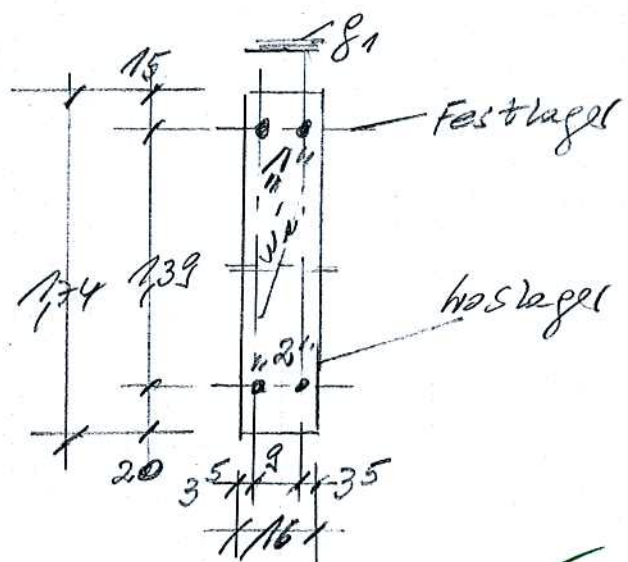 g1
15
Festlager
"1"
1,74
1,39
Loslager
"2"
20
3⁵ 9 3⁵
16